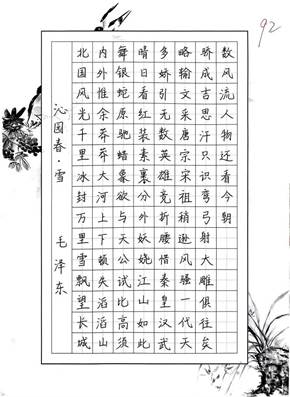 92
沁园春·雪 毛泽东
北国风光千里冰封万里雪飘望长城
内外惟余莽莽大河上下顿失滔滔山
舞银蛇原驰蜡象欲与天公试比高须
晴日看红装素裹分外妖娆江山如此
多娇引无数英雄竞折腰惜秦皇汉武
略输文采唐宗宋祖稍逊风骚一代天
骄成吉思汗只识弯弓射大雕俱往矣
数风流人物还看今朝